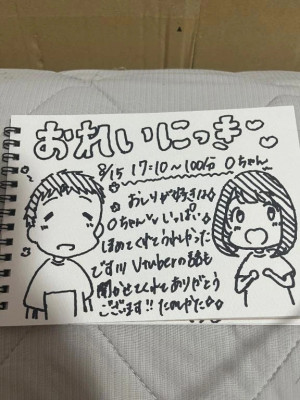 おれいにっき
8/15 17:10~100分 〇ちゃん
おしりが好きな
〇ちゃん いっぱい
ほめてくれてうれしかった
です!!! Vtuberの話も
聞かせてくれてありがとう
ございます!! たのしかった